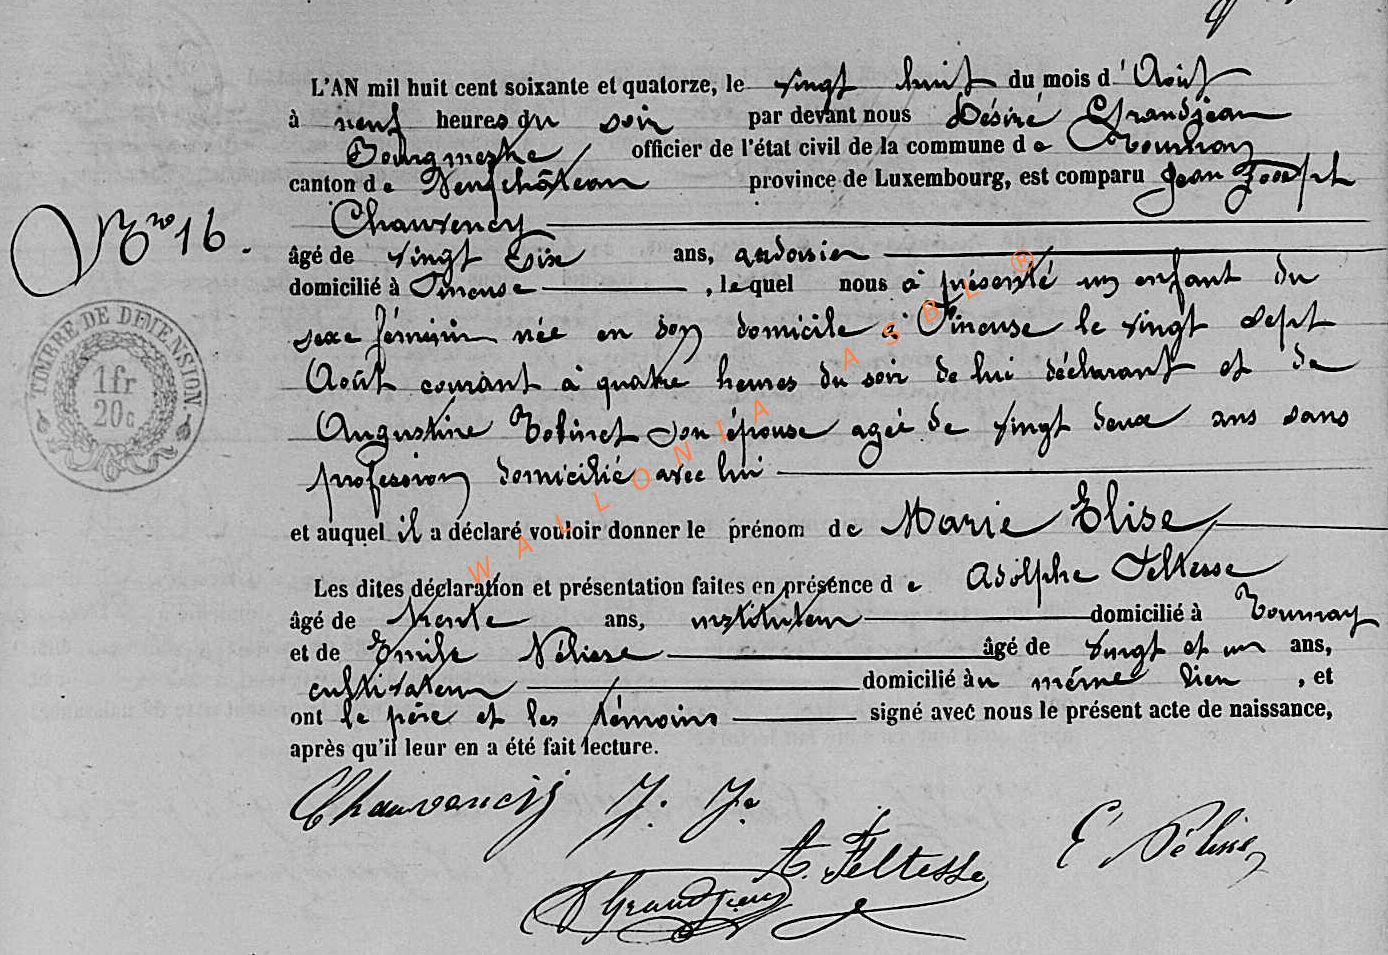 L'AN mil huit cent soixante et quatorze, le vingt huit du mois d'Août
à neuf heures du soir par devant nous Désiré Grandjean
Bourgmestre officier de l'état civil de la commune de Tournay
canton de Neufchâteau province de Luxembourg, est comparu Jean Joseph
Chauvency
Nro 16.
âgé de vingt six ans, ardoisier
domicilié à Tineuse, lequel nous a présenté un enfant du
sexe féminin née en son domicile à Tineuse le vingt sept
Août courant à quatre heures du soir de lui déclarant et de
Augustine Robinet son épouse agée de vingt deux ans sans
profession domicilié avec lui
et auquel il a déclaré vouloir donner le prénom de Marie Elise
Les dites déclaration et présentation faites en présence de Adolphe Feltesse
âgé de trente ans, instituteur domicilié à Tournay
et de Emile Pélisse âgé de vingt et un ans,
cultivateur domicilié au même lieu, et
ont le père et les témoins signé avec nous le présent acte de naissance,
après qu'il leur en a été fait lecture.
Chauvency J. J.
A. Feltesse
E Pélisse
D Grandjean
TIMBRE DE DIMENSION
1fr
20c
WALLONIA ASBL ®